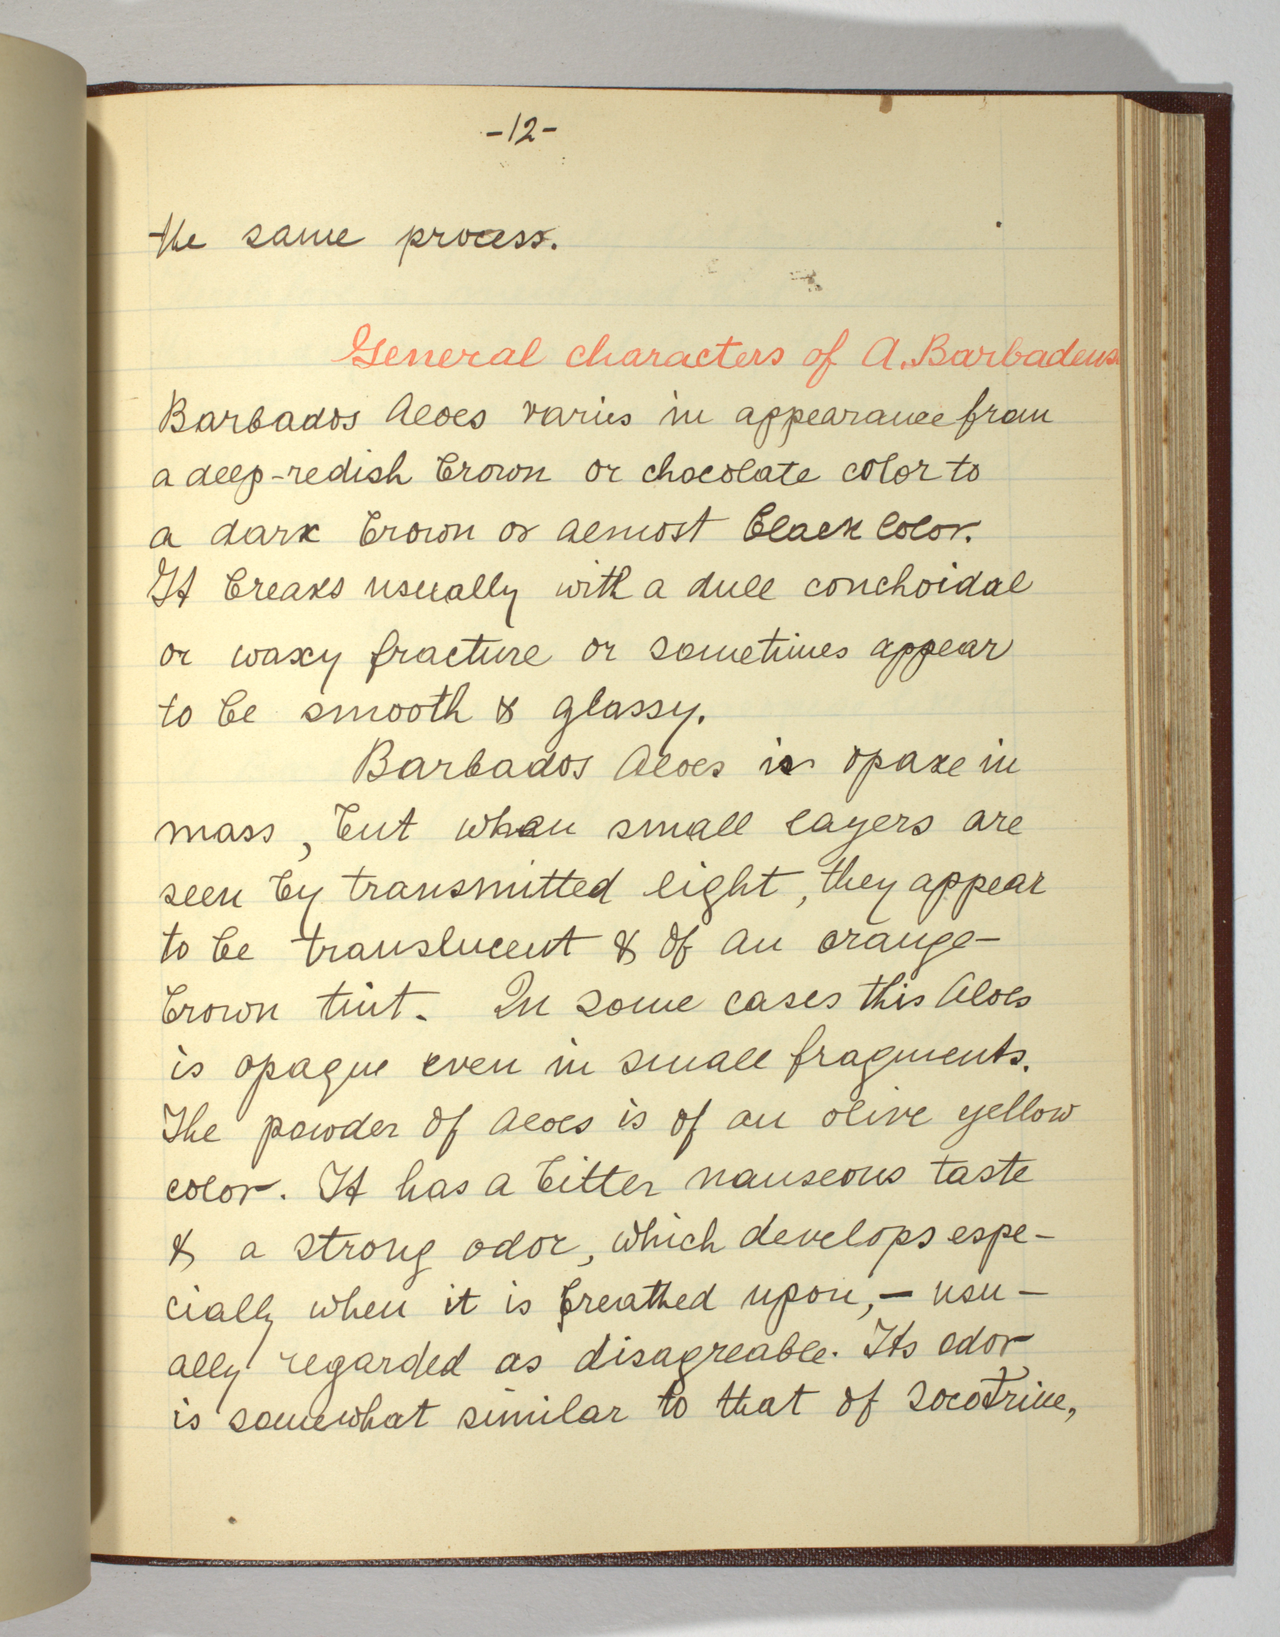 -12-
the same process.
General characters of A. Barbadens
Barbados Aloes varies in appearance from
a deep-redish brown or chocolate color to
a dark brown or almost black color.
It breaks usually with a dull conchoidal
or waxy fracture or sometimes appear
to be smooth & glassy.
Barbados Aloes is opake in
mass, but when small layers are
seen by transmitted light, they appear
to be translucent & of an orange-
brown tint. In some cases this Aloes
is opaque even in small fragments.
The powder of Aloes is of an olive yellow
color. It has a bitter nauseous taste
& a strong odor, which develops espe-
cially when it is breathed upon, - usu-
ally regarded as disagreable. Its odor
is somewhat similar to that of Socotrine,